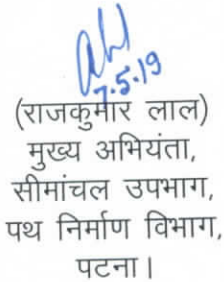 7.5.19
(राजकुमार लाल)
मुख्य अभियंता,
सीमांचल उपभाग,
पथ निर्माण विभाग,
पटना।